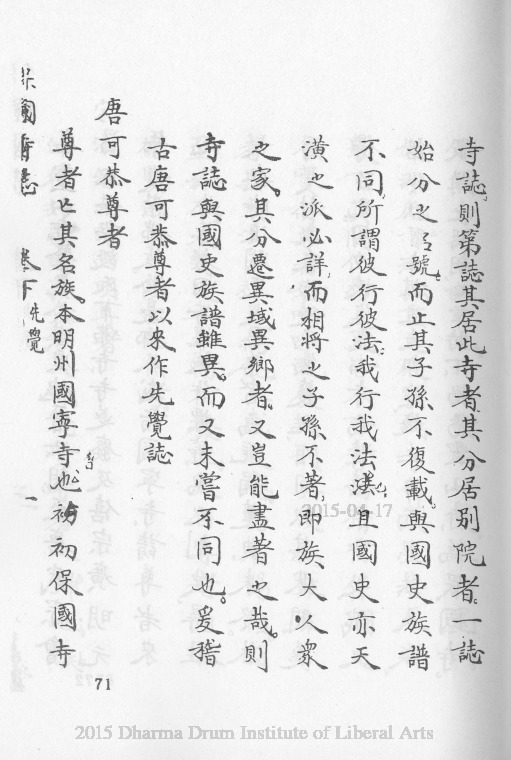 寺誌。則第誌其居此寺者。其分居別院者。一誌
始分之名號。而止其子孫不復載。與國史族譜
不同。所謂彼行彼法。我行我法。且國史亦天
潢之派必詳。而相將之子孫不著。即族大人衆
之家。其分遷異域異鄉者。又豈能盡著之哉。則
寺誌與國史族譜雖異。而又未嘗不同也。爰稽
古唐可恭尊者以來作先覺誌
唐可恭尊者
尊者亡其名族。本明州國寧寺也。初保國寺
保國寺志 卷下 先覺 一
71
2015-04-17
2015 Dharma Drum Institute of Liberal Arts